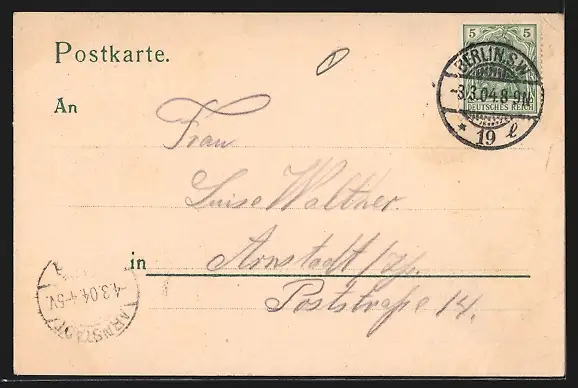 Postkarte.
5 5
DEUTSCHES REICH
BERLIN. S.W.
-3.3.04.8-9N.
* 19 l
An
Frau
Luise Walther.
in Arnstadt/Th.
Poststraße 14.
ARNSTADT
4.3.04.4-5V.